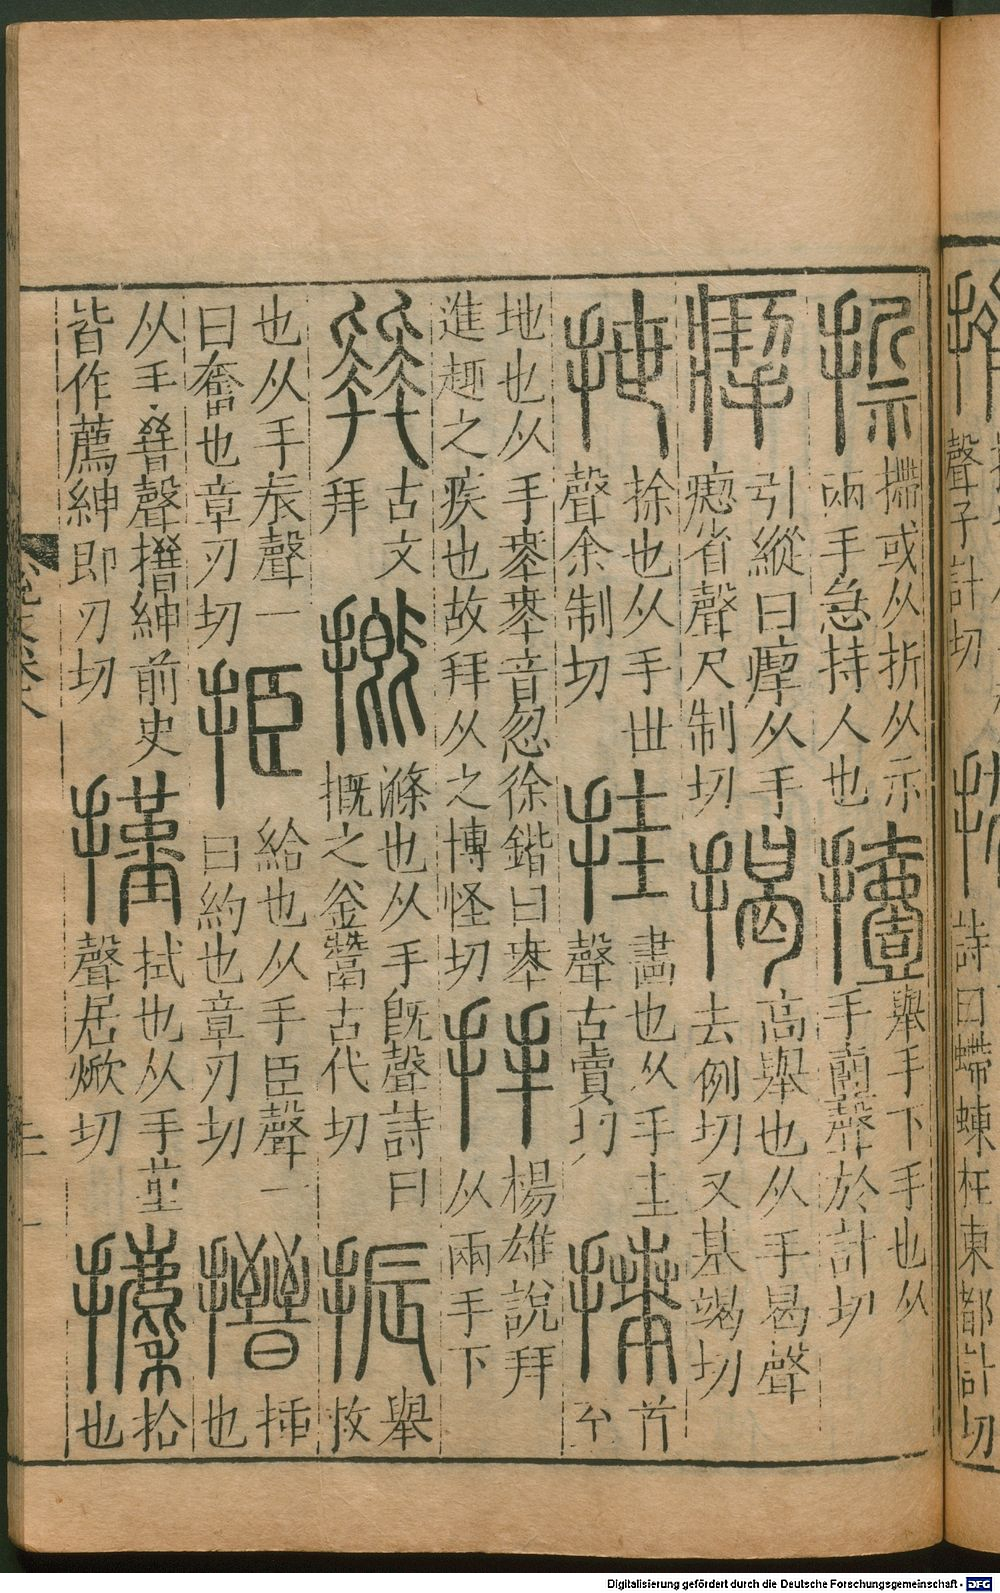 詩曰螮蝀在東都計切
聲子計切
摕或从折从示兩手急持人也撎舉手下手也从手壹聲於計切
引縱曰从手瘛省聲尺制切揭高舉也从手曷聲去例切又基竭切
抴捈也从手世聲余制切挂畫也从手圭聲古賣切𢷎首至
地也从手𠦪𠦪音忽徐鍇曰𠦪進趣之疾也故拜从之博怪切拜楊雄說拜从兩手下
古文拜摡滌也从手旣聲詩曰摡之釜鬵古代切振舉救
也从手辰聲一曰奮也章刃切挋給也从手臣聲一曰約也章刃切搢插也
从手晉聲搢紳前史皆作薦紳即刃切㨷拭也从手堇聲居焮切攈拾也
Digitalisierung gefördert durch die Deutsche Forschungsgemeinschaft - DFG